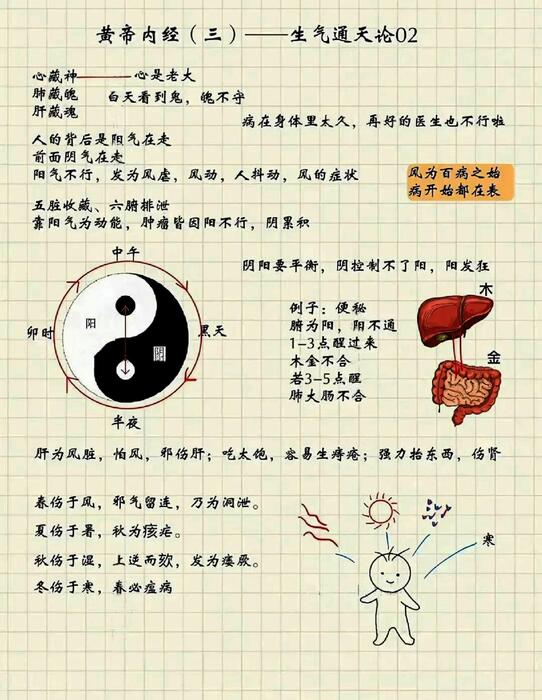 黄帝内经（三）——生气通天论02
心藏神——心是老大
肺藏魄
肝藏魂
白天看到鬼，魄不守
病在身体里太久，再好的医生也不行啦
人的背后是阳气在走
前面阴气在走
阳气不行，发为风虚，风动，人抖动，风的症状
风为百病之始
病开始都在表
五脏收藏、六腑排泄
靠阳气为动能，肿瘤皆因阳不行，阴累积
中午
卯时
阳
阴
黑天
半夜
阴阳要平衡，阴控制不了阳，阳发狂
例子：便秘
腑为阳，阳不通
1-3点醒过来
木金不合
若3-5点醒
肺大肠不合
木
金
肝为风脏，怕风，邪伤肝；吃太饱，容易生痔疮；强力抬东西，伤肾
春伤于风，邪气留连，乃为洞泄。
夏伤于暑，秋为痎疟。
秋伤于湿，上逆而欬，发为痿厥。
冬伤于寒，春必瘟病
寒